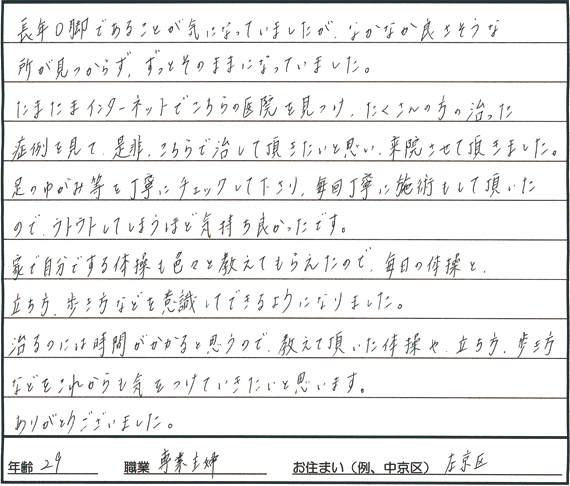 長年O脚であることが気になっていましたが、なかなか良さそうな
所が見つからず、ずっとそのままになっていました。
たまたまインターネットでこちらの医院を見つけ、たくさんの方の治った
症例を見て、是非、こちらで治して頂きたいと思い、来院させて頂きました。
足のゆがみ等を丁寧にチェックして下さり、毎回丁寧に施術もして頂いた
ので、ウトウトしてしまうほど気持ち良かったです。
家で自分でする体操も色々と教えてもらえたので、毎日の体操と、
立ち方、歩き方などを意識してできるようになりました。
治るのには時間がかかると思うので、教えて頂いた体操や、立ち方、歩き方
などをこれからも気をつけていきたいと思います。
ありがとうございました。
年齢 29 職業 専業主婦 お住まい(例、中京区) 左京区